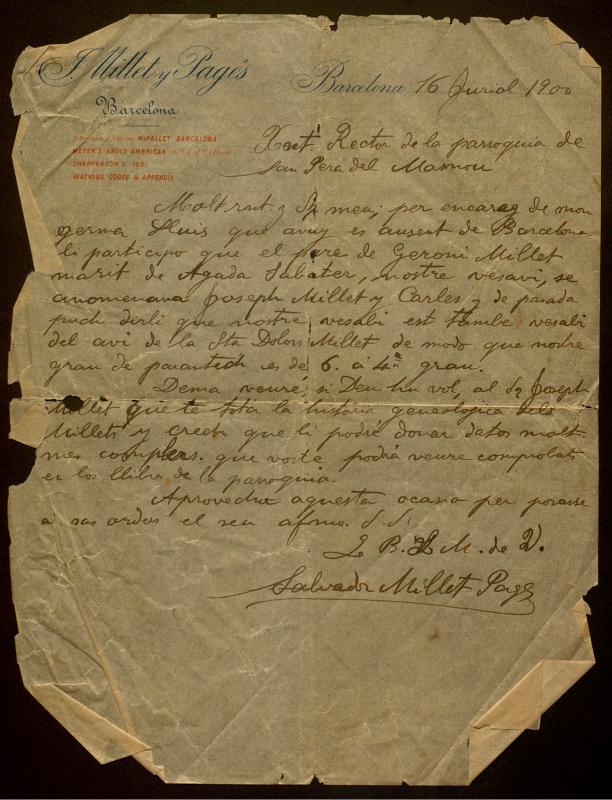 J. Millet y Pagés
Barcelona
Barcelona 16 Juriol 1900
Telegraphic Address MIPALLET BARCELONA
MEYER'S ANGLO AMERICAN
SHEPPERSON'S 1881
WATKINS' CODES & APPENDIX
Rector de la parroquia de
San Pera del Masnou
Molt y Sr meu; per encareg de mon
germa Lluis que avuy es ausent de Barcelona
li participo que el pare de Geroni Millet
marit de Agada Sabater, nostre vesavi, se
anomenava Joseph Millet y Carles y de pasada
puch dirli que nostre vesabi est tambe vesabi
del avi de la Sta Dolors Millet de modo que nostre
grau de parantech es de 6. á 4rt grau.
Dema veuré, si Deu ho vol, al Sr Joseph
Millet que te tota la historia geneologica dels
Millets y crech que li podré donar datos molt
mes complers. que vosté podrá veure comprobat
en los llibres de la parroquia.
Aprovecho aquesta ocasio per posarse
á sas ordes el seu afmo. S. S.
Q B. S. M. de V.
Salvador Millet Pagés